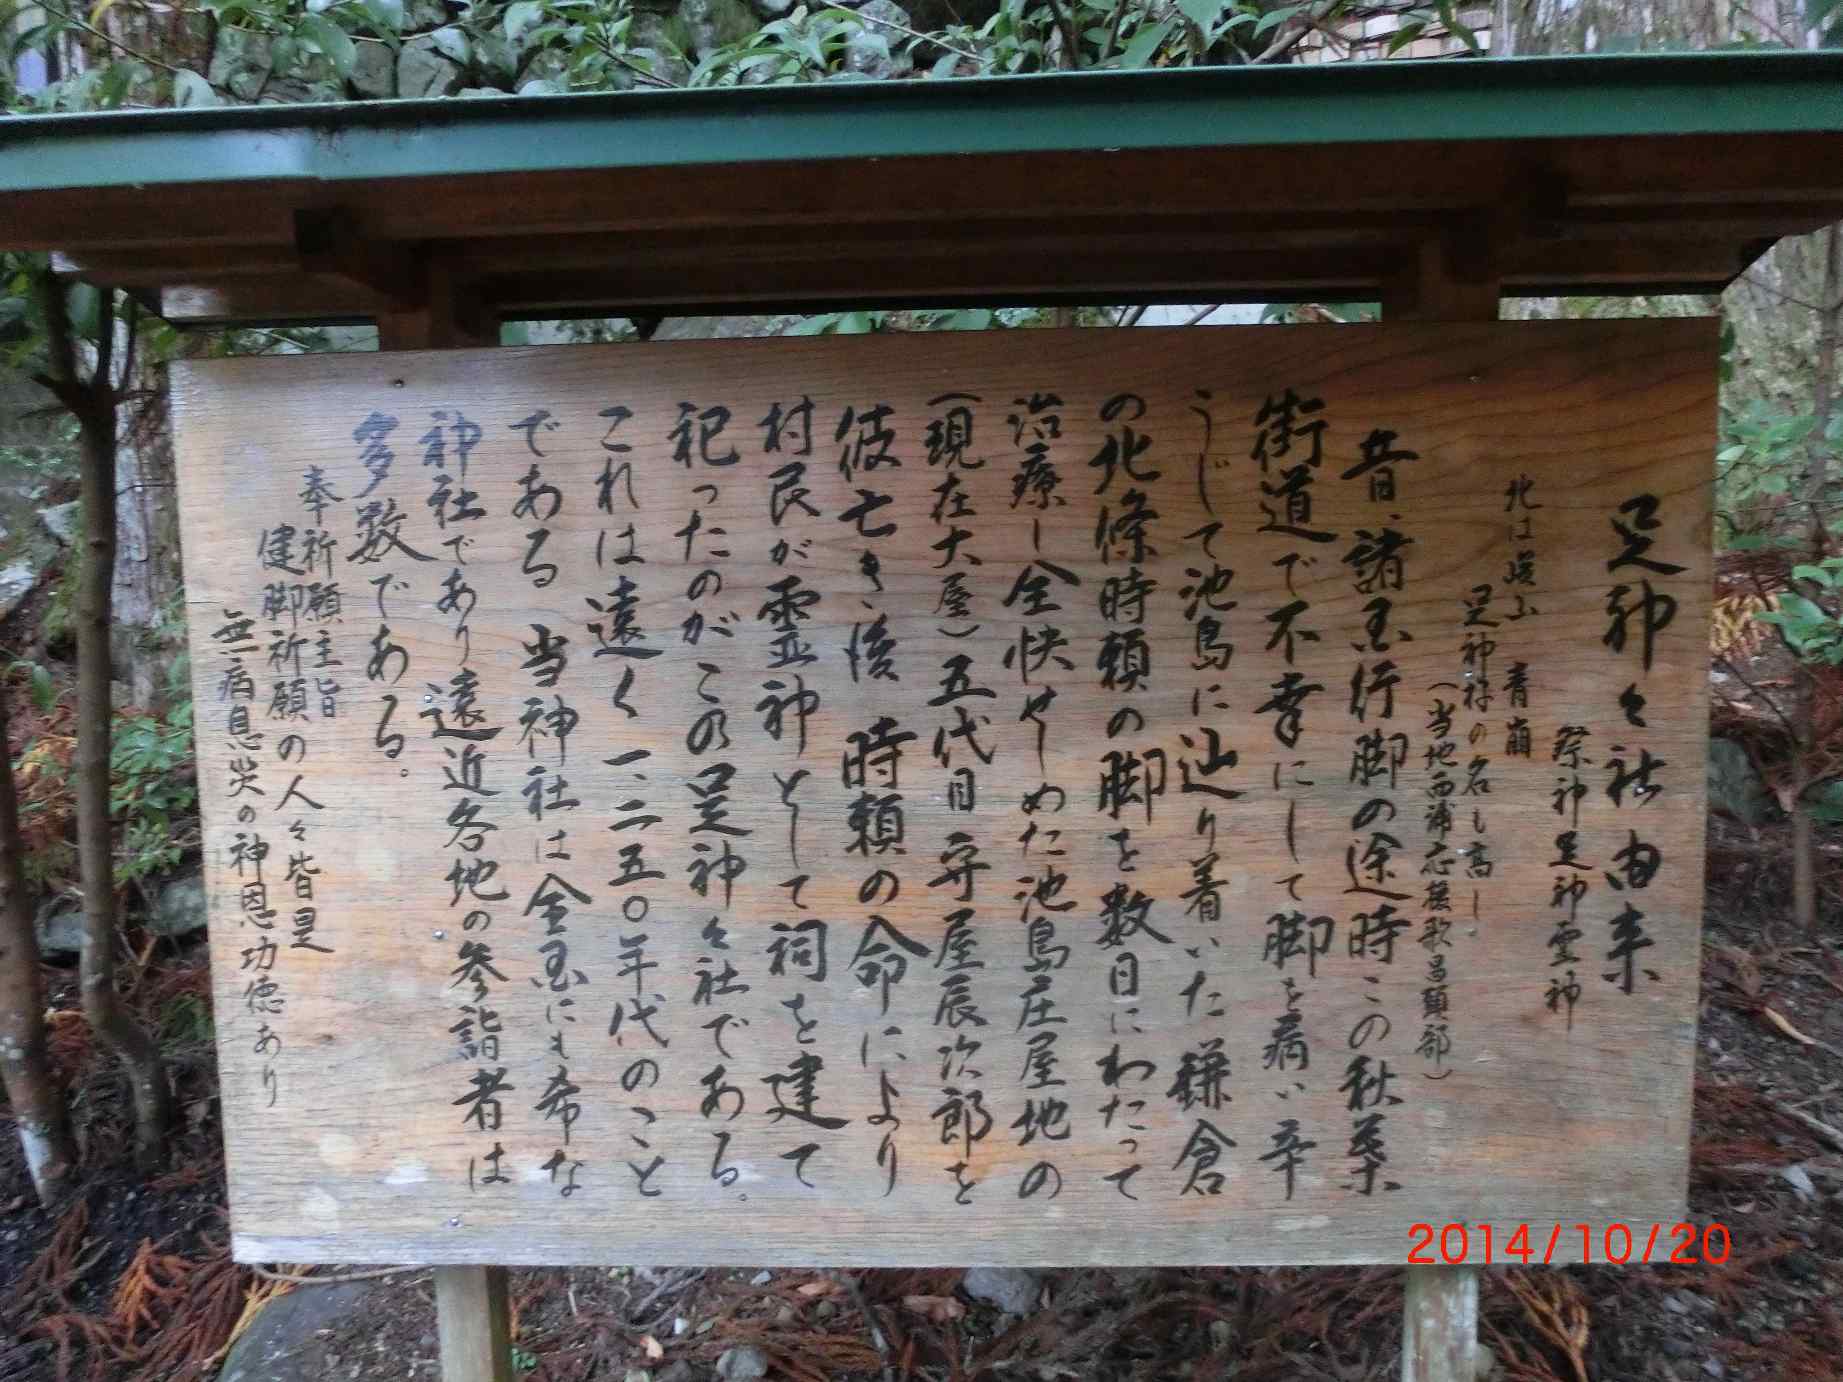 足神々社由来
祭神足神霊神
北は嶮山 青崩
足神様の名も高し
(当地西浦応援歌冒頭部)
昔、諸国行脚の途時この秋葉
街道で不幸にして脚を病い辛
うじて池島に辿り着いた鎌倉
の北條時頼の脚を数日にわたって
治療し全快せしめた池島庄屋地の
(現在大屋)五代目守屋辰次郎を
彼亡き後 時頼の命により
村民が霊神として祠を建て
祀ったのがこの足神々社である。
これは遠く一、二五〇年代のこと
である 当神社は全国にも希な
神社であり遠近各地の参詣者は
多数である。
奉祈願主旨
健脚祈願の人々皆是
無病息災の神恩功徳あり
2014/10/20